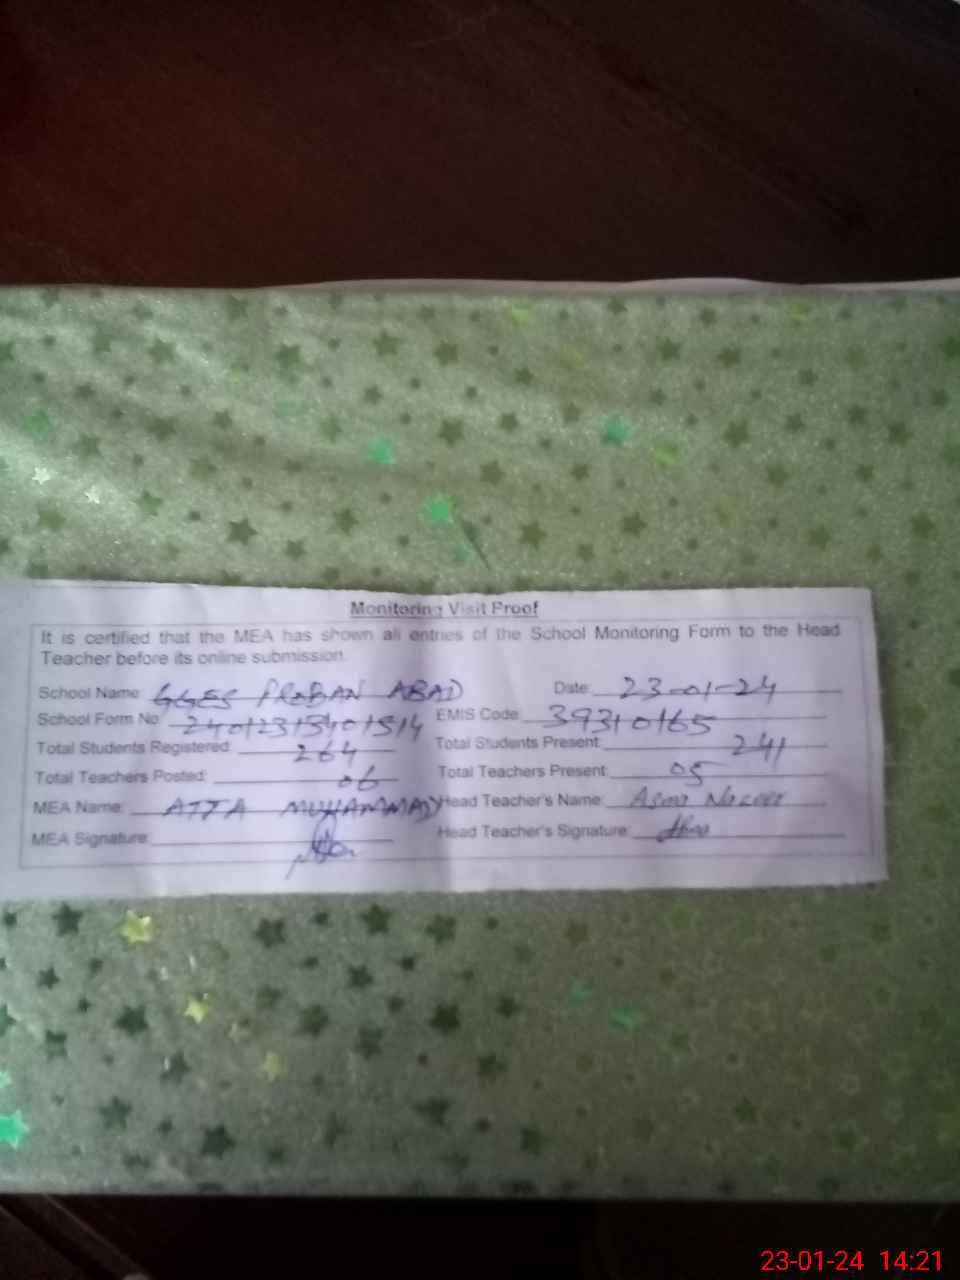 Monitoring Visit Proof
It is certified that the MEA has shown all entries of the School Monitoring Form to the Head
Teacher before its online submission.
School Name: GGES ABAD Date: 23-01-24
School Form No: EMIS Code: 39310165
Total Students Registered: 264 Total Students Present: 241
Total Teachers Posted: 06 Total Teachers Present: 05
MEA Name: ATTA MUHAMMAD Head Teacher's Name: Asma
MEA Signature: Head Teacher's Signature:
23-01-24 14:21